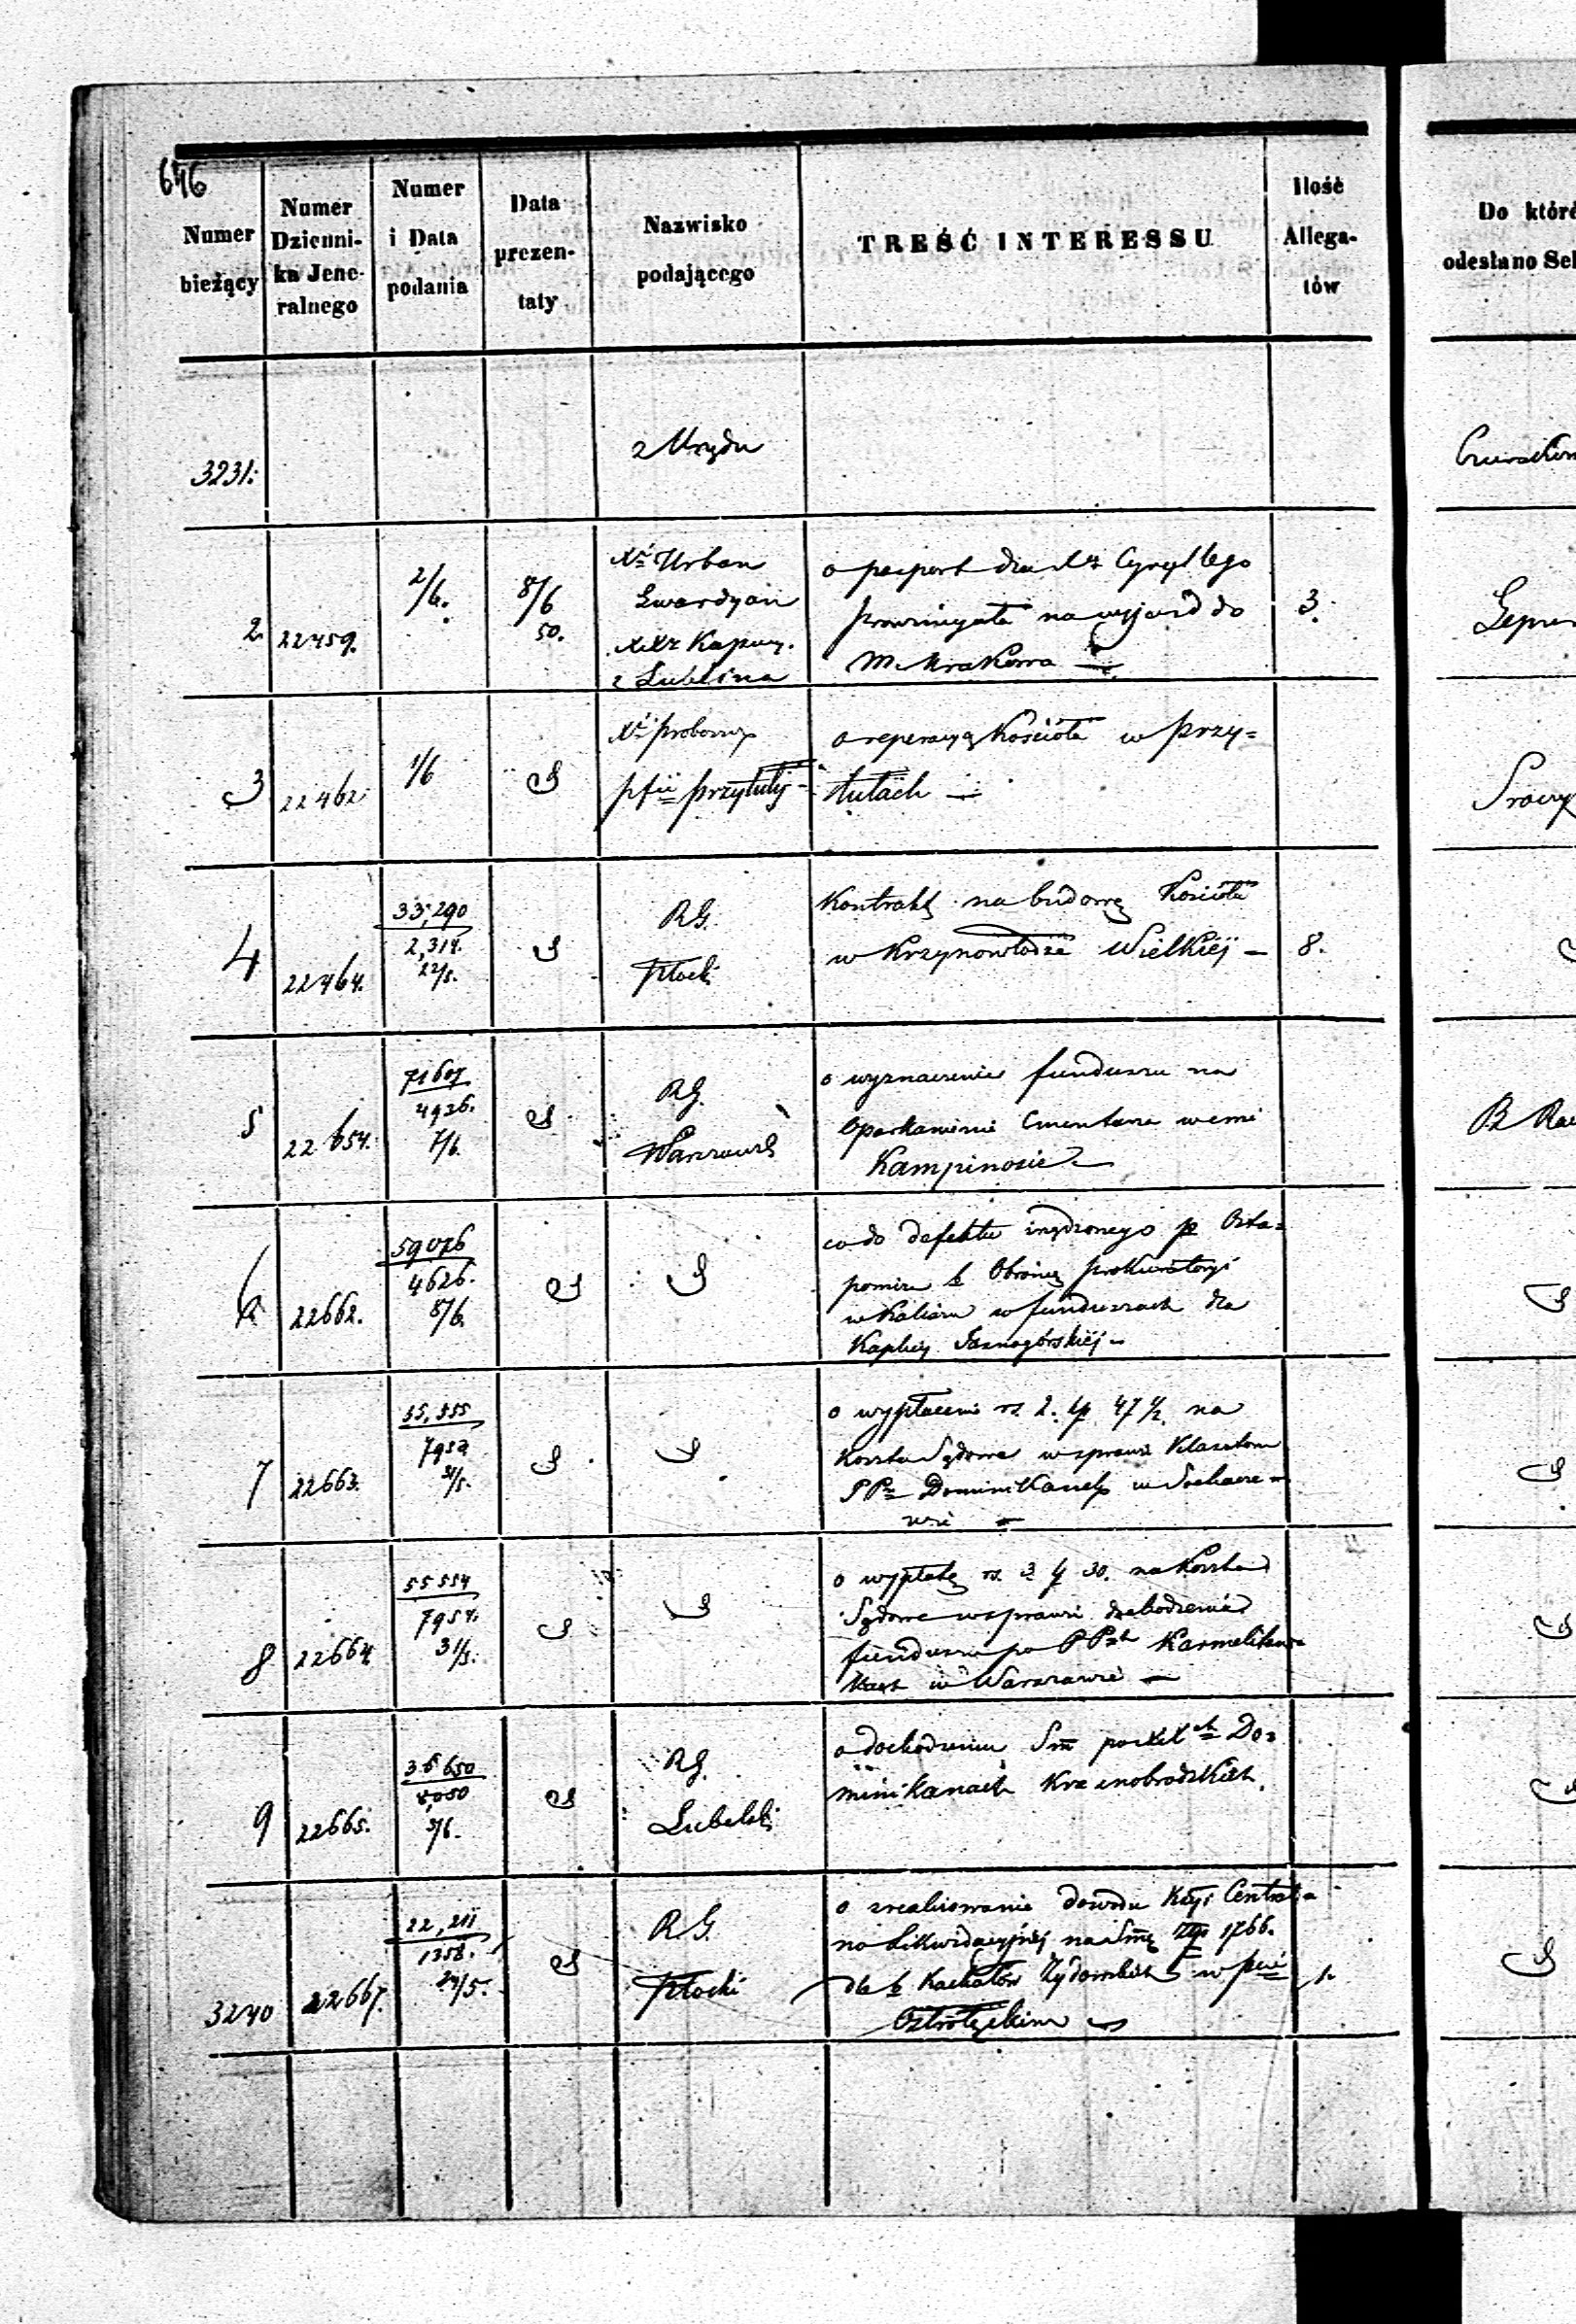 646
Numer bieżący
Numer Dzienni- ka Jene- ralnego
Numer i Data podania
Data prezen- taty
Nazwisko podającego
TREŚĆ INTERESSU
Ilość Allega- tów
Do któr
odesłano Sek
3231.
z Urzędu
2. 22459. 2/6. 8/6 50.
Xdz Urban
Gwardyan
XXz Kapucy.
z Lublina
o pasport dla Xdz Cyryllego
Prowincyała na wyjazd do
M. Krakowa
3.
3 22462. 1/6
Xdz proboszcz
pfii Przytuły
o reperacyą Kościoła w Przy=
tułach
4 22464. 33,290 2,314. 22/5.
RG.
Płocki
Kontrakt na budowę Kościoła
w Krzynowłodze Wielkiéj
8.
5 22654. 71607 4926. 7/6.
RG.
Warszawski
o wyznaczenie funduszu na
Oparkanienie Cmentarza we wsi
Kampinosie
6 22662. 59076 4626. 8/6
co do defektu
b. Obrońcę Prokuratoryi
w Kaliszu w funduszach dla
Kaplicy Jasnogórskiéj
7 22663. 7952 31/5.
o wypłacenie rs. 2. kp. 47½ na
Koszta Sądowe w sprawie Klasztoru
PPn Dominikanek w Sochacze=
wie
8 22664 55554 7954. 31/5.
o wypłatę rs. 3 k 30. na Koszta
Sądowe w sprawie dochodzenia
funduszu po PPch Karmelitan=
kach w Warszawie
9 22665. 36650 3/6.
RG.
Lubelski
o dochodzeniu Sm po XXch Do=
minikanach Krasnobrodzkich.
3240 22667. 22,211 1358. 24/5.
RG.
Płocki
o zrealizowanie dowodu Kssyi Central=
no Likwidacyjnéj na Smę Zp 1766.
dla b Kahałów Żydowskich w pcie
Ostrołęckim
1.